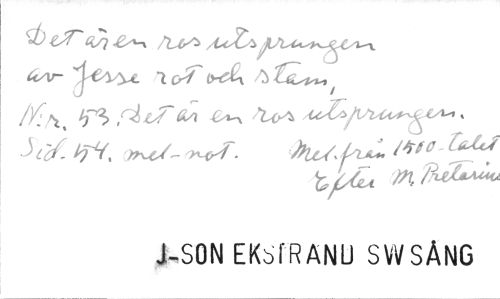 Det är en ros utsprungen
av Jesse rot och stam,
N:r. 53. Det är en ros utsprungen.
Sid. 54. mel-not. Mel. från 1500-talet
Efter M. Pretorius
J-SON EKSTRAND SW SÅNG